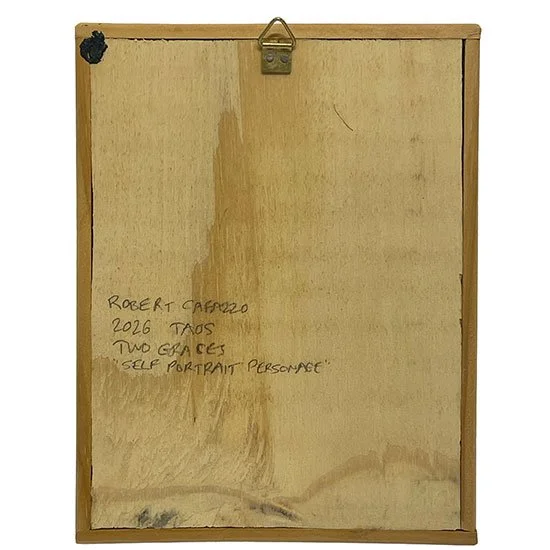 ROBERT CAFAZZO
2026 TAOS
TWO GRACES
"SELF PORTRAIT PERSONAGE"